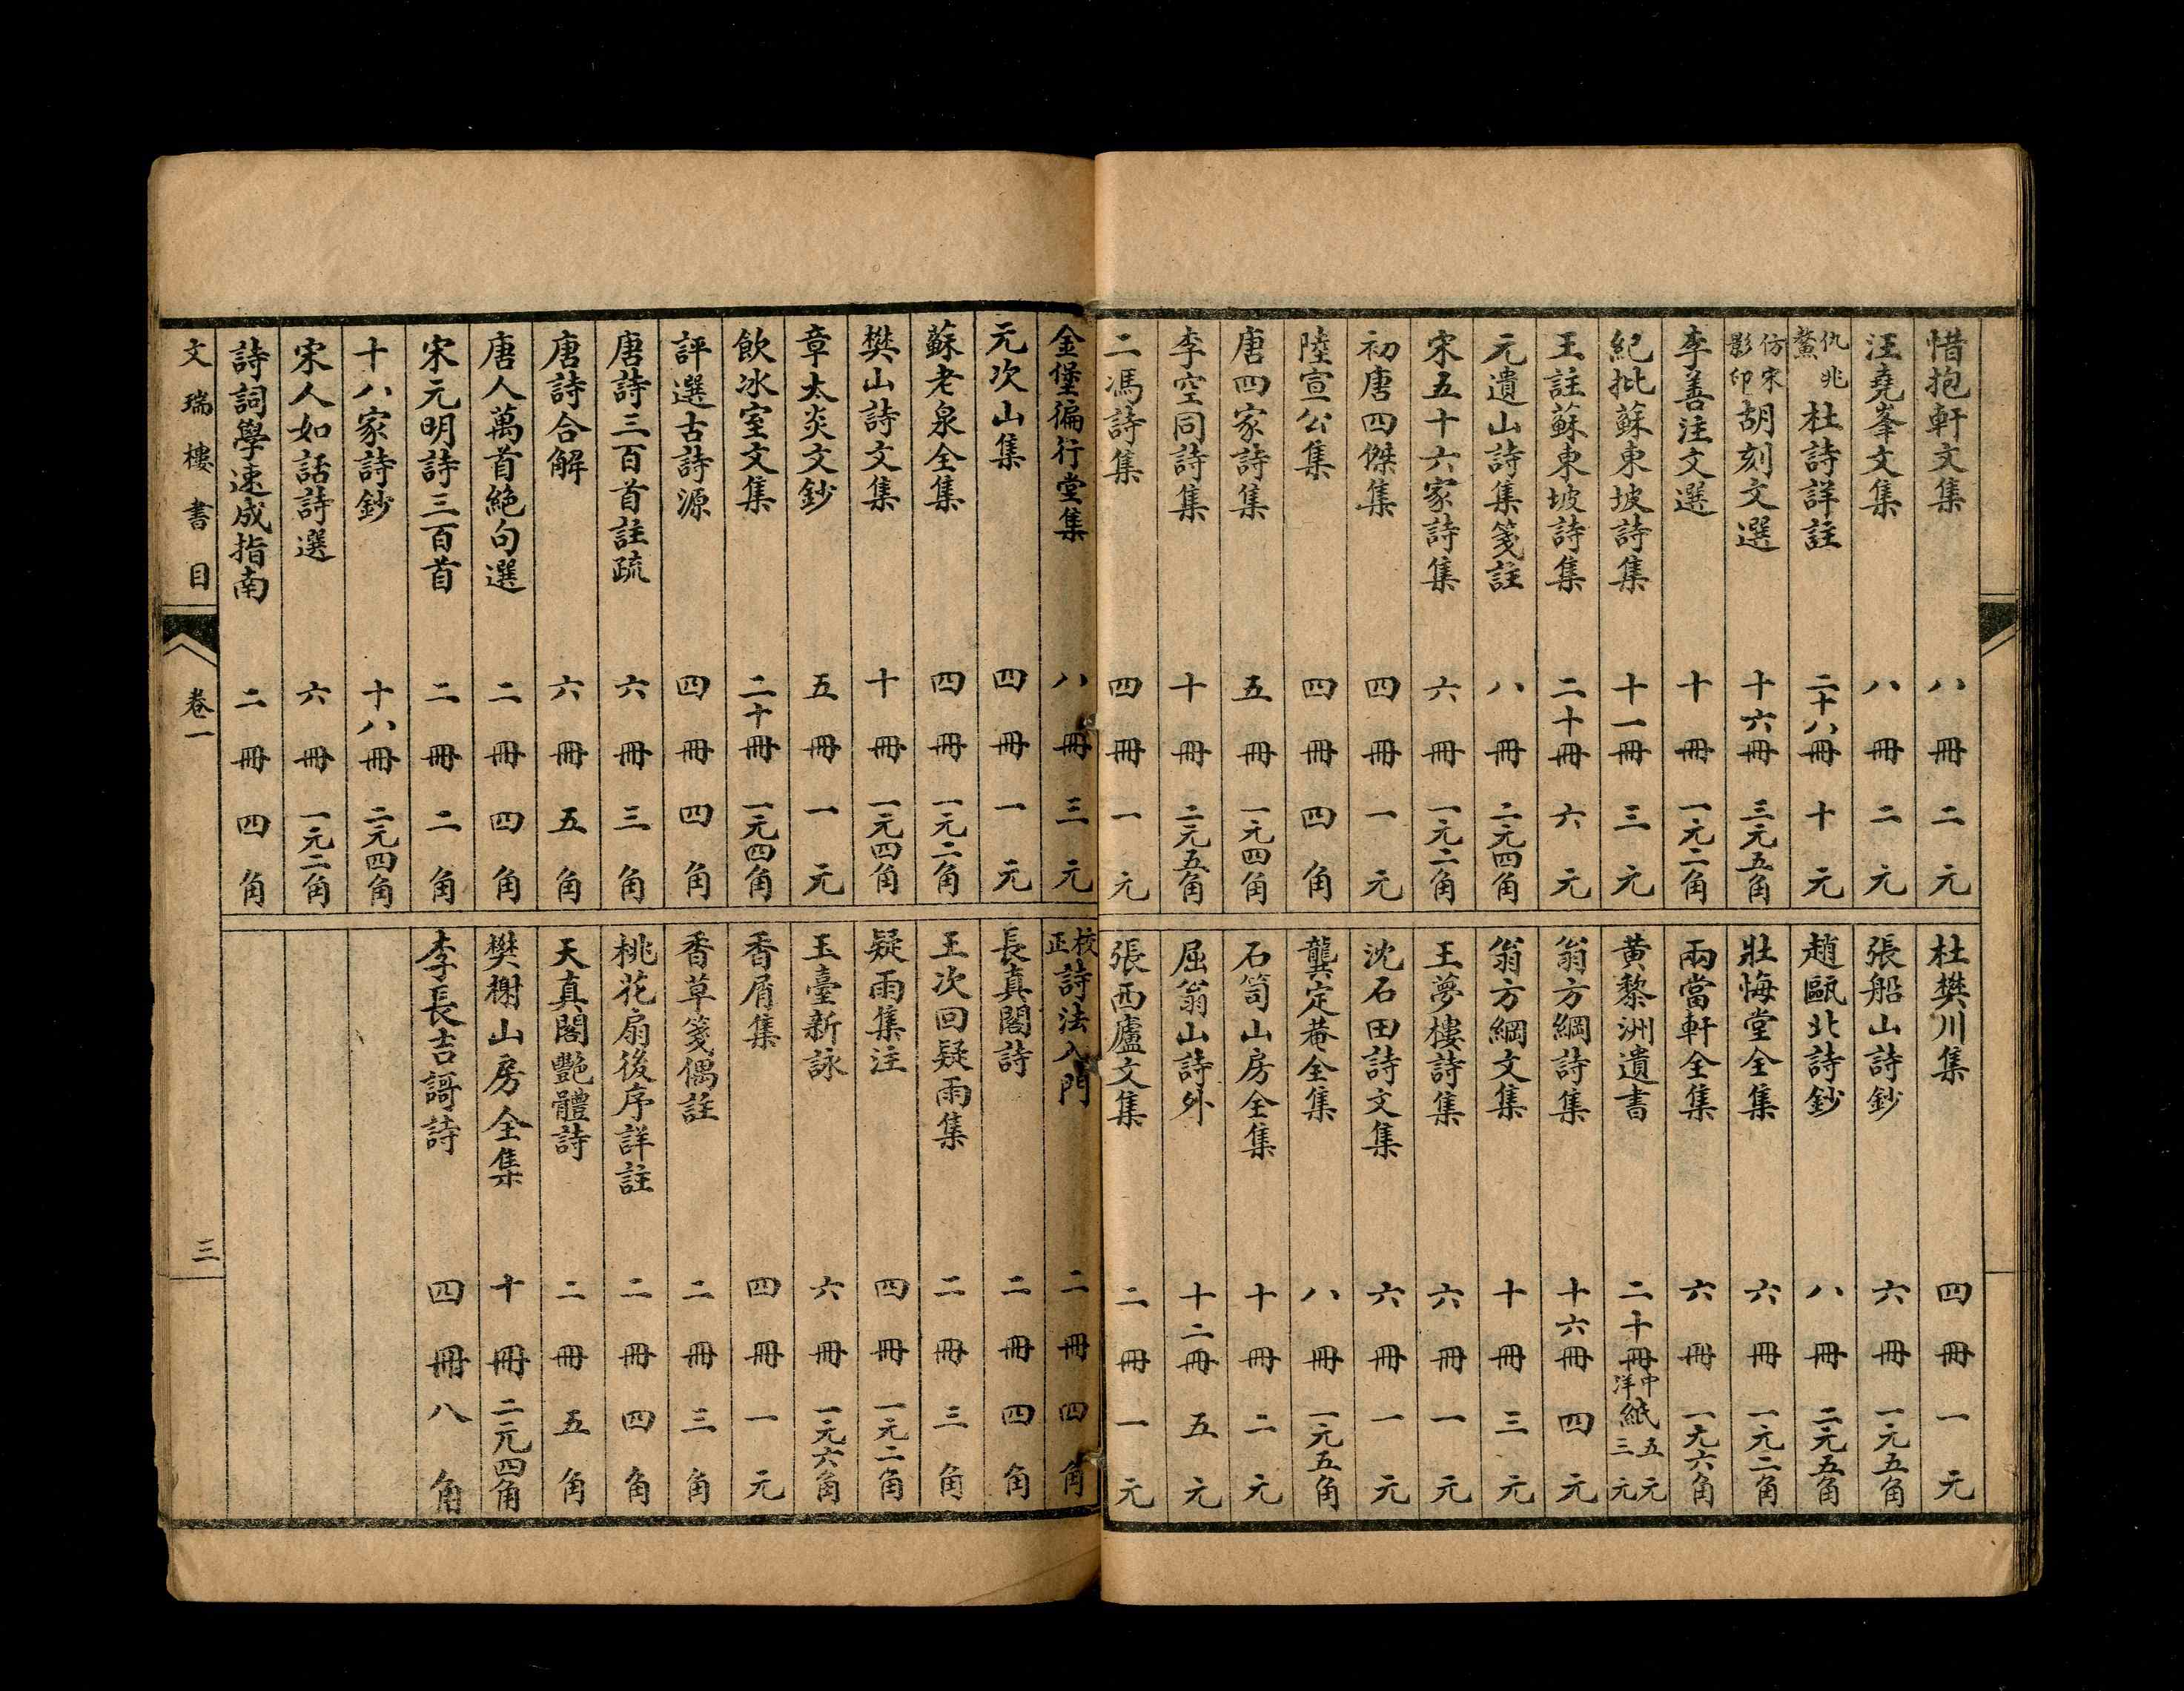 惜抱軒文集 八冊 二元
汪堯峯文集 八冊 二元
仇兆鰲杜詩詳註 二十八冊 十元
仿宋影印胡刻文選 十六冊 三元五角
李善注文選 十冊 一元二角
紀批蘇東坡詩集 十一冊 三元
王註蘇東坡詩集 二十冊 六元
元遺山詩集箋註 八冊 二元四角
宋五十六家詩集 六冊 一元二角
初唐四傑集 四冊 一元
陸宣公集 四冊 四角
唐四家詩集 五冊 一元四角
李空同詩集 十冊 二元五角
二馮詩集 四冊 一元
杜樊川集 四冊 一元
張船山詩鈔 六冊 一元五角
趙甌北詩鈔 八冊 二元五角
壯悔堂全集 六冊 一元二角
兩當軒全集 六冊 一元六角
黄黎洲遺書 二十冊 中洋紙 五元三元
翁方綱詩集 十六冊 四元
翁方綱文集 十冊 三元
王夢樓詩集 六冊 一元
沈石田詩文集 六冊 一元
龔定菴全集 八冊 一元五角
石笥山房全集 十冊 二元
屈翁山詩外 十二冊 五元
張西廬文集 二冊 一元
金堡徧行堂集 八冊 三元
元次山集 四冊 一元
蘇老泉全集 四冊 一元二角
樊山詩文集 十冊 一元四角
章太炎文鈔 五冊 一元
飲冰室文集 二十冊 一元四角
評選古詩源 四冊 四角
唐詩三百首註疏 六冊 三角
唐詩合解 六冊 五角
唐人萬首絕句選 二冊 四角
宋元明詩三百首 二冊 二角
十八家詩鈔 十八冊 二元四角
宋人如話詩選 六冊 一元二角
詩詞學速成指南 二冊 四角
校正詩法入門 二冊 四角
長真閣詩 二冊 四角
王次回疑雨集 二冊 三角
疑雨集注 四冊 一元二角
玉臺新詠 六冊 一元六角
香屑集 四冊 一元
香草箋偶註 二冊 三角
桃花扇後序詳註 二冊 四角
天真閣艷體詩 二冊 五角
樊榭山房全集 十冊 二元四角
李長吉謌詩 四冊 八角
文瑞樓書目 卷一 三